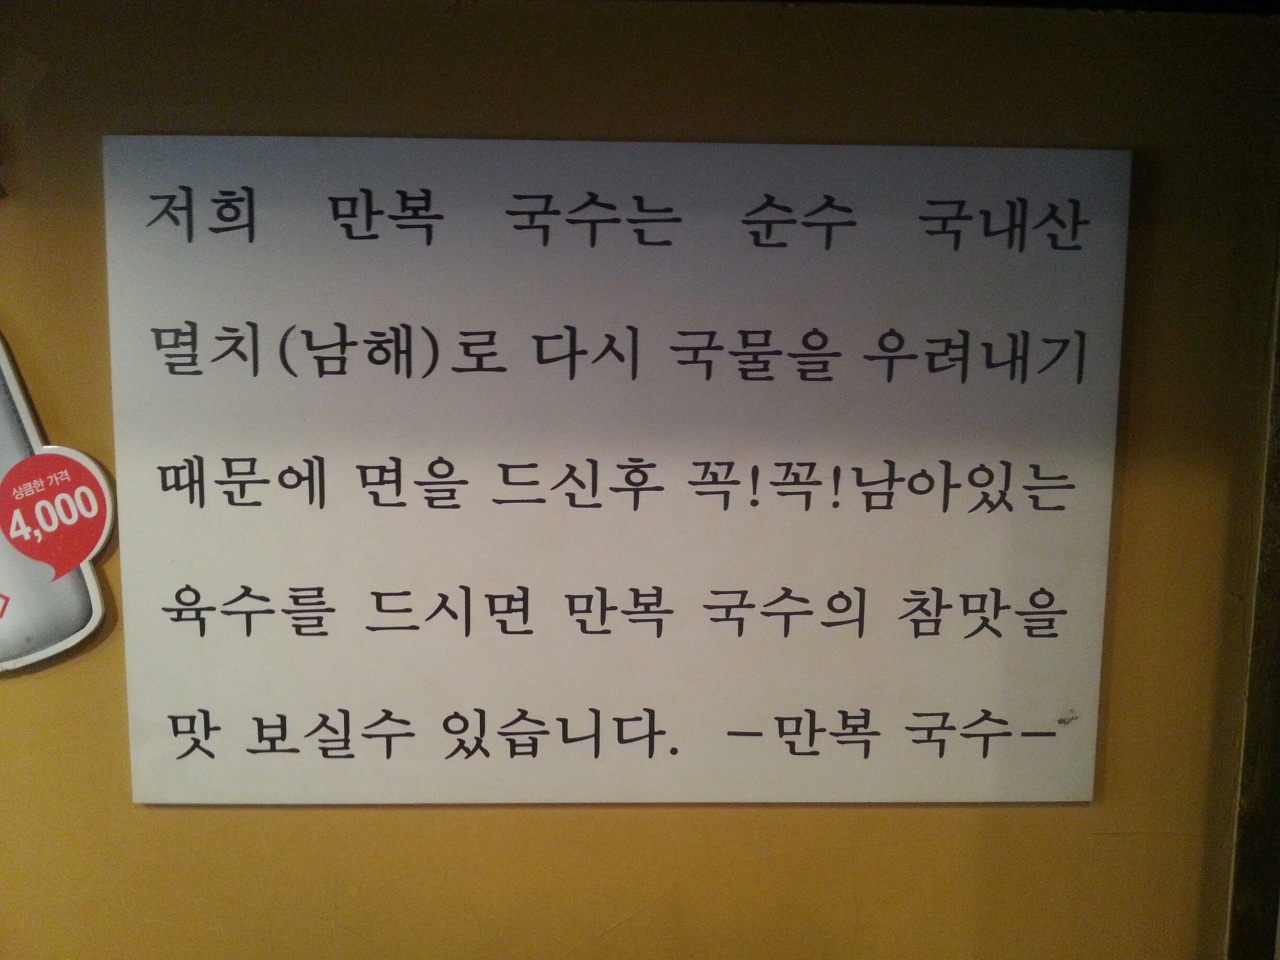 저희 만복 국수는 순수 국내산
멸치(남해)로 다시 국물을 우려내기
때문에 면을 드신후 꼭!꼭!남아있는
육수를 드시면 만복 국수의 참맛을
맛 보실수 있습니다. -만복 국수-
상큼한 가격
4,000